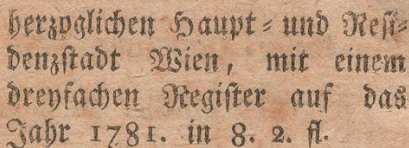 herzoglichen Haupt- und Resi-
denzstadt Wien, mit einem
dreyfachen Register auf das
Jahr 1781. in 8. 2. fl.